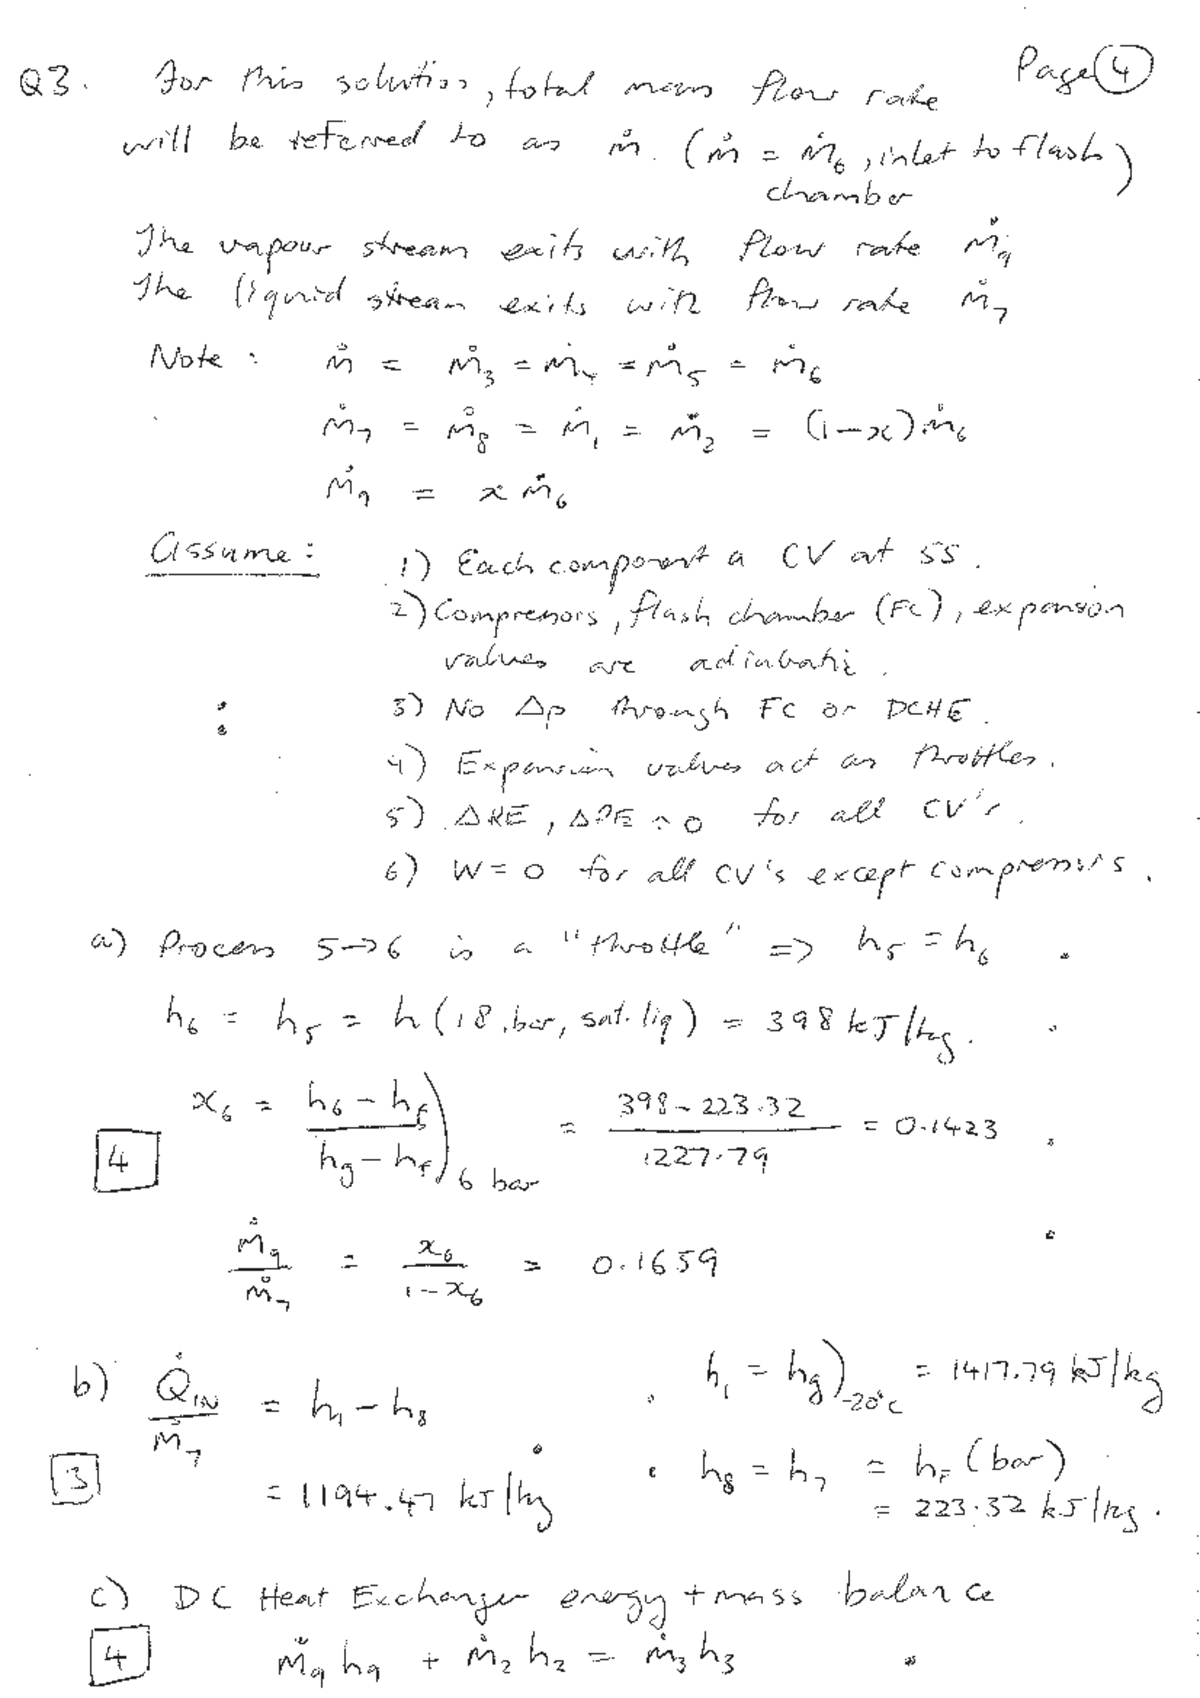 Page 4
Q3. For this solution, total mass flow rate
will be referred to as ṁ. (ṁ = ṁ₆, inlet to flash chamber)
The vapour stream exits with flow rate ṁ₉
The liquid stream exits with flow rate ṁ₇
Note : ṁ = ṁ₃ = ṁ₄ = ṁ₅ = ṁ₆
ṁ₇ = ṁ₈ = ṁ₁ = ṁ₂ = (1-x).ṁ₆
ṁ₉ = x ṁ₆
Assume : 1) Each component a CV at SS.
2) Compressors, flash chamber (FC), expansion
valves are adiabatic.
3) No Δp through FC or DCHE.
4) Expansion valves act as throttles.
5) ΔKE, ΔPE ≈ 0 for all CV's.
6) W = 0 for all CV's except compressors.
a) Process 5→6 is a "throttle" => h₅ = h₆
h₆ = h₅ = h (18 bar, sat. liq) = 398 kJ/kg.
x₆ = (h₆ - h_f)/(h_g - h_f))₆ bar = (398 - 223.32)/1227.79 = 0.1423
4
ṁ₉/ṁ₇ = x₆/(1-x₆) = 0.1659
b) Q̇_IN/ṁ₇ = h₁ - h₈ h₁ = h_g)₋₂₀°C = 1417.79 kJ/kg
3
= 1194.47 kJ/kg h₈ = h₇ = h_F (bar)
= 223.32 kJ/kg.
c) DC Heat Exchanger energy + mass balance
4
ṁ₉ h₉ + ṁ₂ h₂ = ṁ₃ h₃